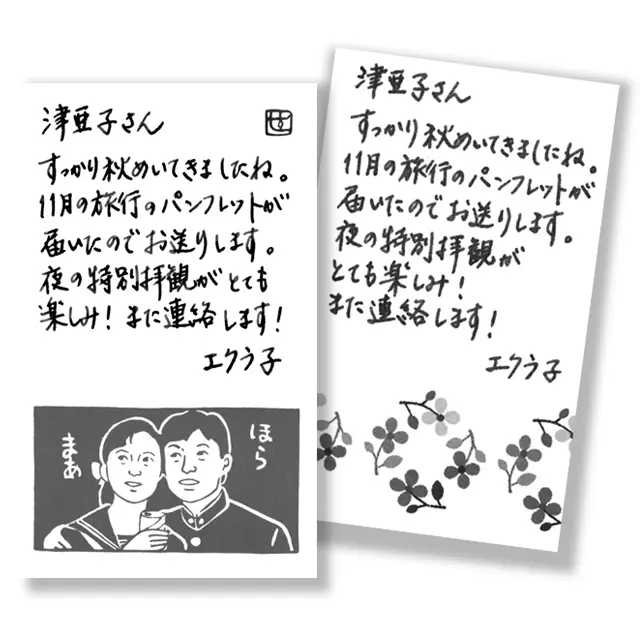 津亜子さん
すっかり秋めいてきましたね。
11月の旅行のパンフレットが
届いたのでお送りします。
夜の特別拝観がとても
楽しみ！また連絡します！
エクラ子
ほら
まあ
津亜子さん
すっかり秋めいてきましたね。
11月の旅行のパンフレットが
届いたのでお送りします。
夜の特別拝観が
とても楽しみ！
また連絡します！
エクラ子